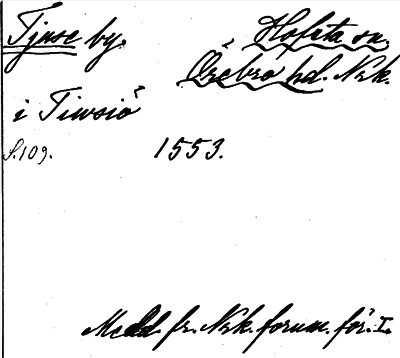 Tjuse by. Hofsta sn.
Örebro hd. Nrk.
i Tiwsiö
S. 109. 1553.
Medd. fr. Nrk. fornm. för. I.